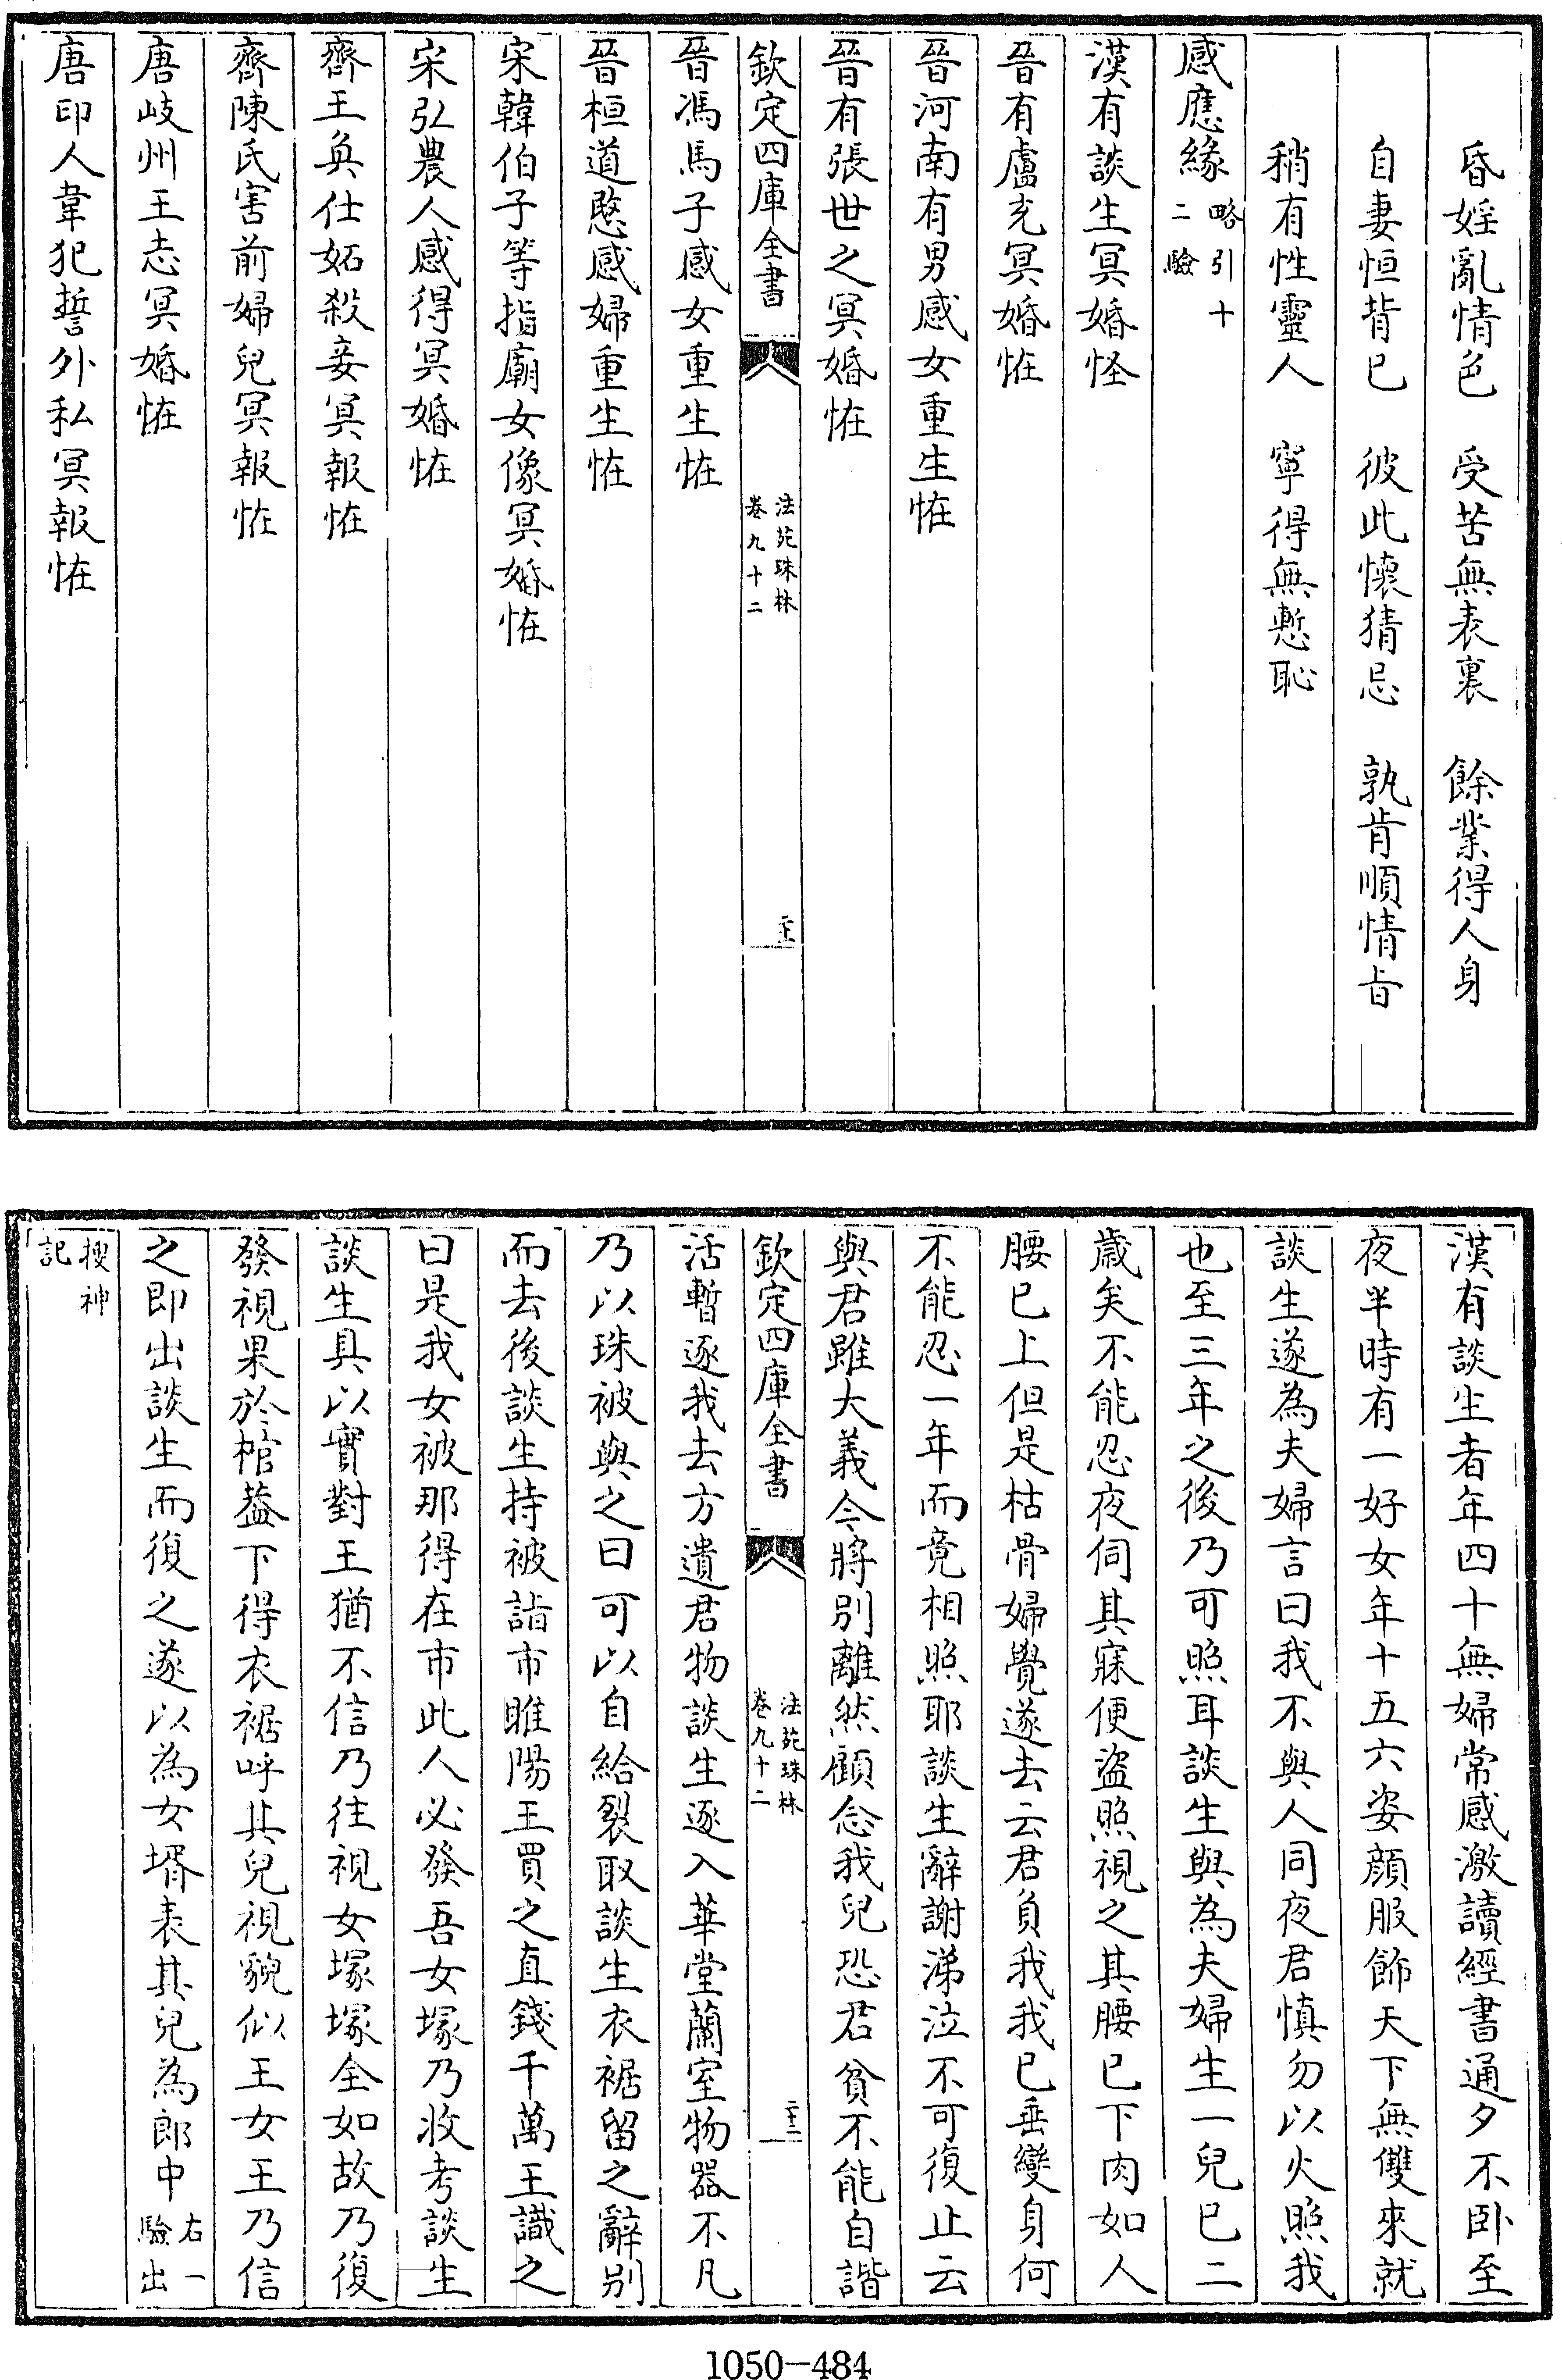 昏婬亂情色　受苦無表裏　餘業得人身
自妻恒背已　彼此懷猜忌　孰肯順情㫖
稍有性靈人　寧得無慙恥
感應緣略引十二驗
漢有談生冥婚怪
晉有盧充冥婚恠
晉河南有男感女重生恠
晉有張世之冥婚恠
欽定四庫全書　法苑珠林卷九十二　二十一
晉馮馬子感女重生恠
晉桓道愍感婦重生恠
宋韓伯子等指廟女像冥婚恠
宋弘農人感得冥婚恠
齊王奐仕妬殺妾冥報恠
齊陳氏害前婦兒冥報恠
唐岐州王志冥婚恠
唐印人韋犯誓外私冥報恠
漢有談生者年四十無婦常感激讀經書通夕不卧至
夜半時有一好女年十五六姿顔服飾天下無雙來就
談生遂為夫婦言曰我不與人同夜君慎勿以火照我
也至三年之後乃可照耳談生與為夫婦生一兒已二
歲矣不能忍夜伺其寐便盜照視之其腰已下肉如人
腰已上但是枯骨婦覺遂去云君負我我已垂變身何
不能忍一年而竟相照耶談生辭謝涕泣不可復止云
與君雖大義今將别離然顧念我兒恐君貧不能自諧
欽定四庫全書　法苑珠林卷九十二　二十二
活暫逐我去方遺君物談生逐入華堂蘭室物器不凡
乃以珠被與之曰可以自給裂取談生衣裾留之辭别
而去後談生持被詣市睢陽王買之直錢千萬王識之
曰是我女被那得在市此人必發吾女塚乃收考談生
談生具以實對王猶不信乃往視女塚塚全如故乃復
發視果於棺葢下得衣裾呼其兒視貌似王女王乃信
之即出談生而復之遂以為女壻表其兒為郎中右一驗出
搜神記
1050-484